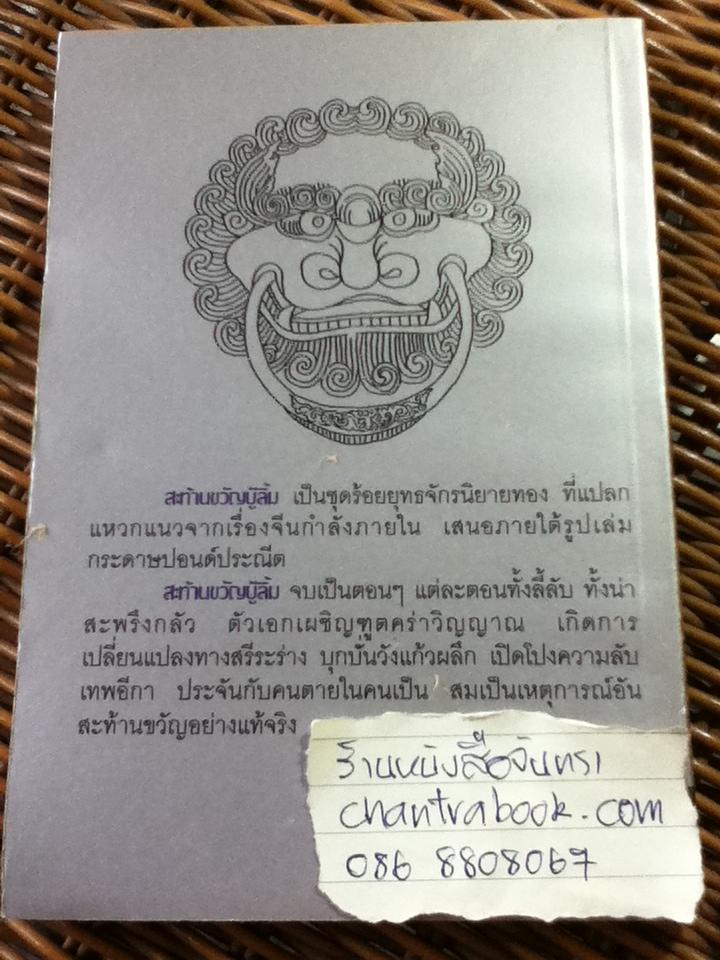 สะท้านขวัญบู๊ลิ้ม เป็นชุดร้อยยุทธจักรนิยายทอง ที่แปลก
แหวกแนวจากเรื่องจีนกำลังภายใน เสนอภายใต้รูปเล่ม
กระดาษปอนด์ประณีต
สะท้านขวัญบู๊ลิ้ม จบเป็นตอนๆ แต่ละตอนทั้งลี้ลับ ทั้งน่า
สะพรึงกลัว ตัวเอกเผชิญฑูตคร่าวิญญาณ เกิดการ
เปลี่ยนแปลงทางสรีระร่าง บุกบั่นวังแก้วผลึก เปิดโปงความลับ
เทพธีกา ประจันกับคนตายในคนเป็น สมเป็นเหตุการณ์อัน
สะท้านขวัญอย่างแท้จริง
ร้านหนังสือจันทรา
chantrabook.com
086 8808067